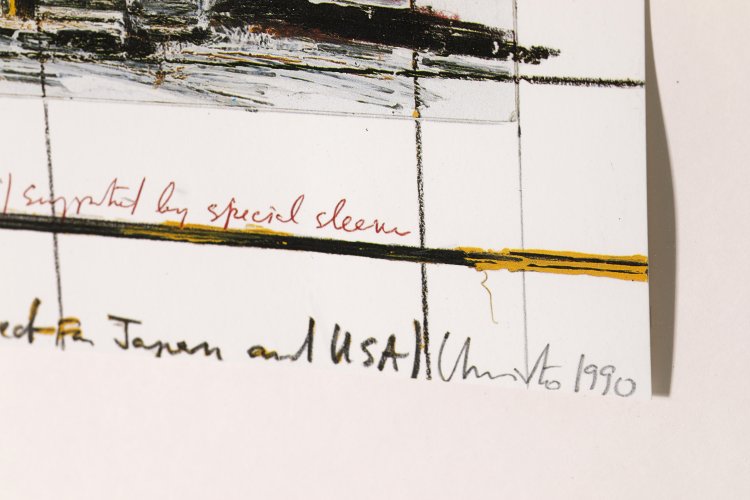 supported by special sleeve
ect For Japan and USA) Christo 1990